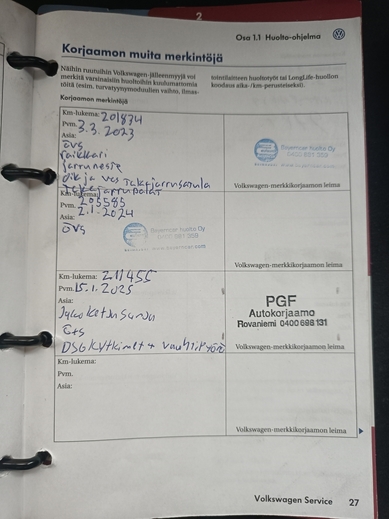 2
Osa 1.1 Huolto-ohjelma
Korjaamon muita merkintöjä
Näihin ruutuihin Volkswagen-jälleenmyyjä voi
merkitä varsinaisiin huoltoihin kuulumattomia
töitä (esim. turvatyynymoduulien vaihto, ilmas-
tointilaitteen huoltotyöt tai LongLife-huollon
koodaus aika-/km-perusteiseksi).
Korjaamon merkintöjä
Km-lukema: 201874
Pvm. 3.3.2023
Asia:
övs
raikkari
jarruneste
oik ja vas takajarrusatula
takajarrupalat
Huolto Oy
0400 861 269
Volkswagen-merkkikorjaamon leima
Km-lukema:
Pvm. 205585
Asia: 2.1.2024
övs
Huolto Oy
Volkswagen-merkkikorjaamon leima
Km-lukema: 211455
Pvm. 15.1.2025
Asia:
Jakoketjusarja
öts
DSG kytkimet + vauhtipyörä
PGF
Autokorjaamo
Rovaniemi 0400 688 131
Volkswagen-merkkikorjaamon leima
Km-lukema:
Pvm.
Asia:
Volkswagen-merkkikorjaamon leima
Volkswagen Service 27